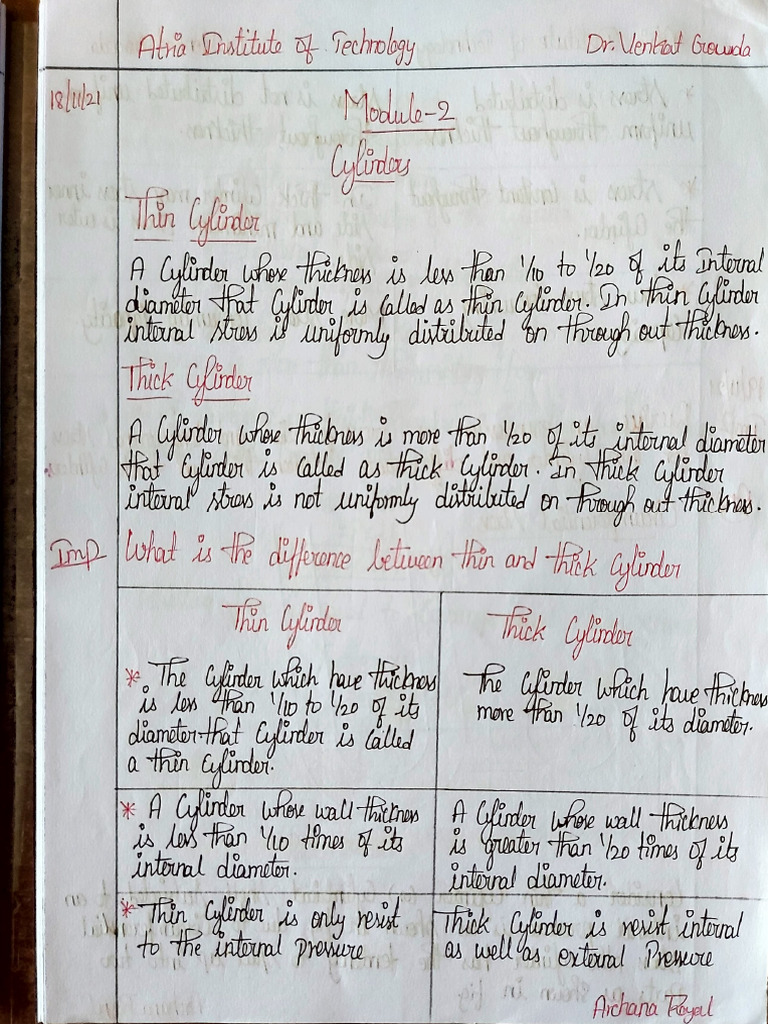 Atria Institute of Technology Dr. Venkat Gowda
18/11/21
Module-2
Cylinders
Thin Cylinder
A Cylinder whose thickness is less than 1/10 to 1/20 of its Internal
diameter that Cylinder is called as thin Cylinder. In thin Cylinder
internal stress is uniformly distributed on through out thickness.
Thick Cylinder
A Cylinder whose thickness is more than 1/20 of its internal diameter
that Cylinder is called as thick Cylinder. In thick Cylinder
internal stress is not uniformly distributed on through out thickness.
Imp What is the difference between thin and thick Cylinder
Thin Cylinder
* The Cylinder which have thickness
is less than 1/10 to 1/20 of its
diameter that Cylinder is called
a thin Cylinder.
Thick Cylinder
The Cylinder which have thickness
more than 1/20 of its diameter.
* A Cylinder whose wall thickness
is less than 1/10 times of its
internal diameter.
A Cylinder whose wall thickness
is greater than 1/20 times of its
internal diameter.
* Thin Cylinder is only resist
to the internal pressure
Thick Cylinder is resist internal
as well as external Pressure
Archana Royal